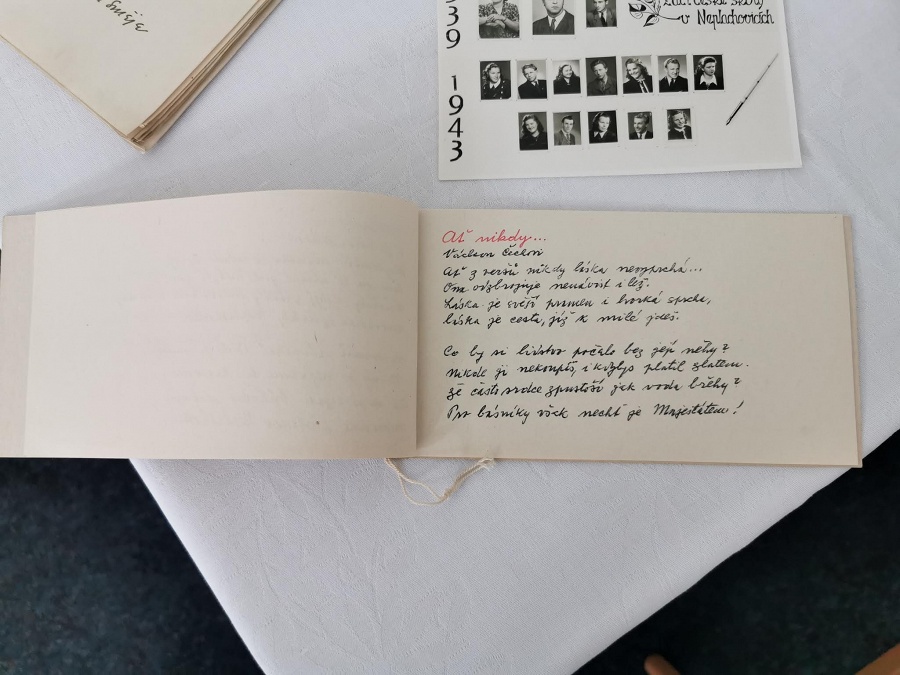 směje
39
1943
v Neplachovicích
Ať nikdy...
Václavu Čechovi
Ať z veršů nikdy láska nevyprchá...
Ona odzbrojuje nenávist i lež.
Láska je svěží pramen i horká sprcha,
láska je cesta, jíž k milé jdeš.
Co by si lidstvo počalo bez její něhy?
Nikde ji nekoupíš, i kdybys platil zlatem.
Že často srdce zpustoší jak voda břehy?
Pro básníky však nechť je Majestátem!